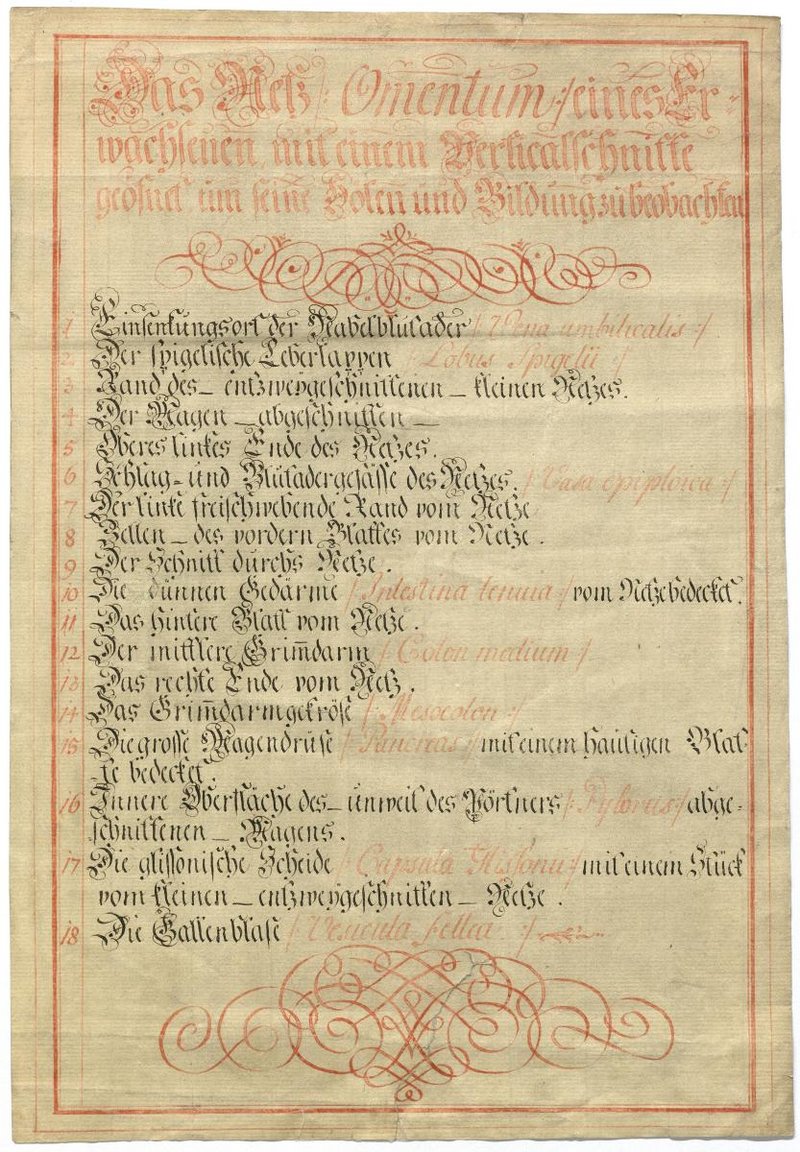 Das Netz /: Omentum :/ eines Er-
wachsenen, mit einem Verticalschnitte
geöfnet um seine Holen und Bildung zu beobachten
1 Einsenkungsort der Nabelblutader /: Vena umbilicalis :/
2. Der spigelische Leberlappen /: Lobus Spigelii :/
3 Rand des _ entzweygeschnittenen _ kleinen Netzes.
4 Der Magen _ abgeschnitten _
5 Oberes linkes Ende des Netzes.
6 Schlag- und Blutadergefässe des Netzes. /: Vasa epiploica :/
7 Der linke freischwebende Rand vom Netze
8 Zellen _ des vordern Blattes vom Netze.
9 Der Schnitt durchs Netze.
10 Die dünnen Gedärme /: Intestina tenuia :/ vom Netze bedecket.
11 Das hintere Blatt vom Netze.
12 Der mittlere Grim̅darm /: Colon medium :/
13 Das rechte Ende vom Netz.
14 Das Grim̅darmgekröse /: Mesocolon :/
15 Die grosse Magendrüse /: Pancreas :/ mit einem häutigen Blat-
te bedecket.
16 Innere Oberfläche des _ unweit des Pförtners /: Pylorus :/ abge-
schnittenen _ Magens.
17 Die glissonische Scheide /: Capsula Glissonii :/ mit einem Stück
vom kleinen _ entzweygeschnitten _ Netze.
18 Die Gallenblase /: Vesicula fellea :/